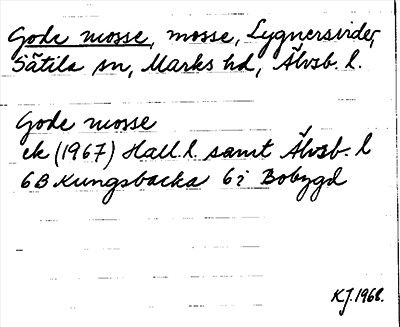 Gode mosse, mosse, Lygnersvider,
Sätila sn, Marks hd, Älvsb. l.
Gode mosse
ek (1967) Hall. l. samt Älvsb. l
6B Kungsbacka 6i Bobygd
KJ. 1968.